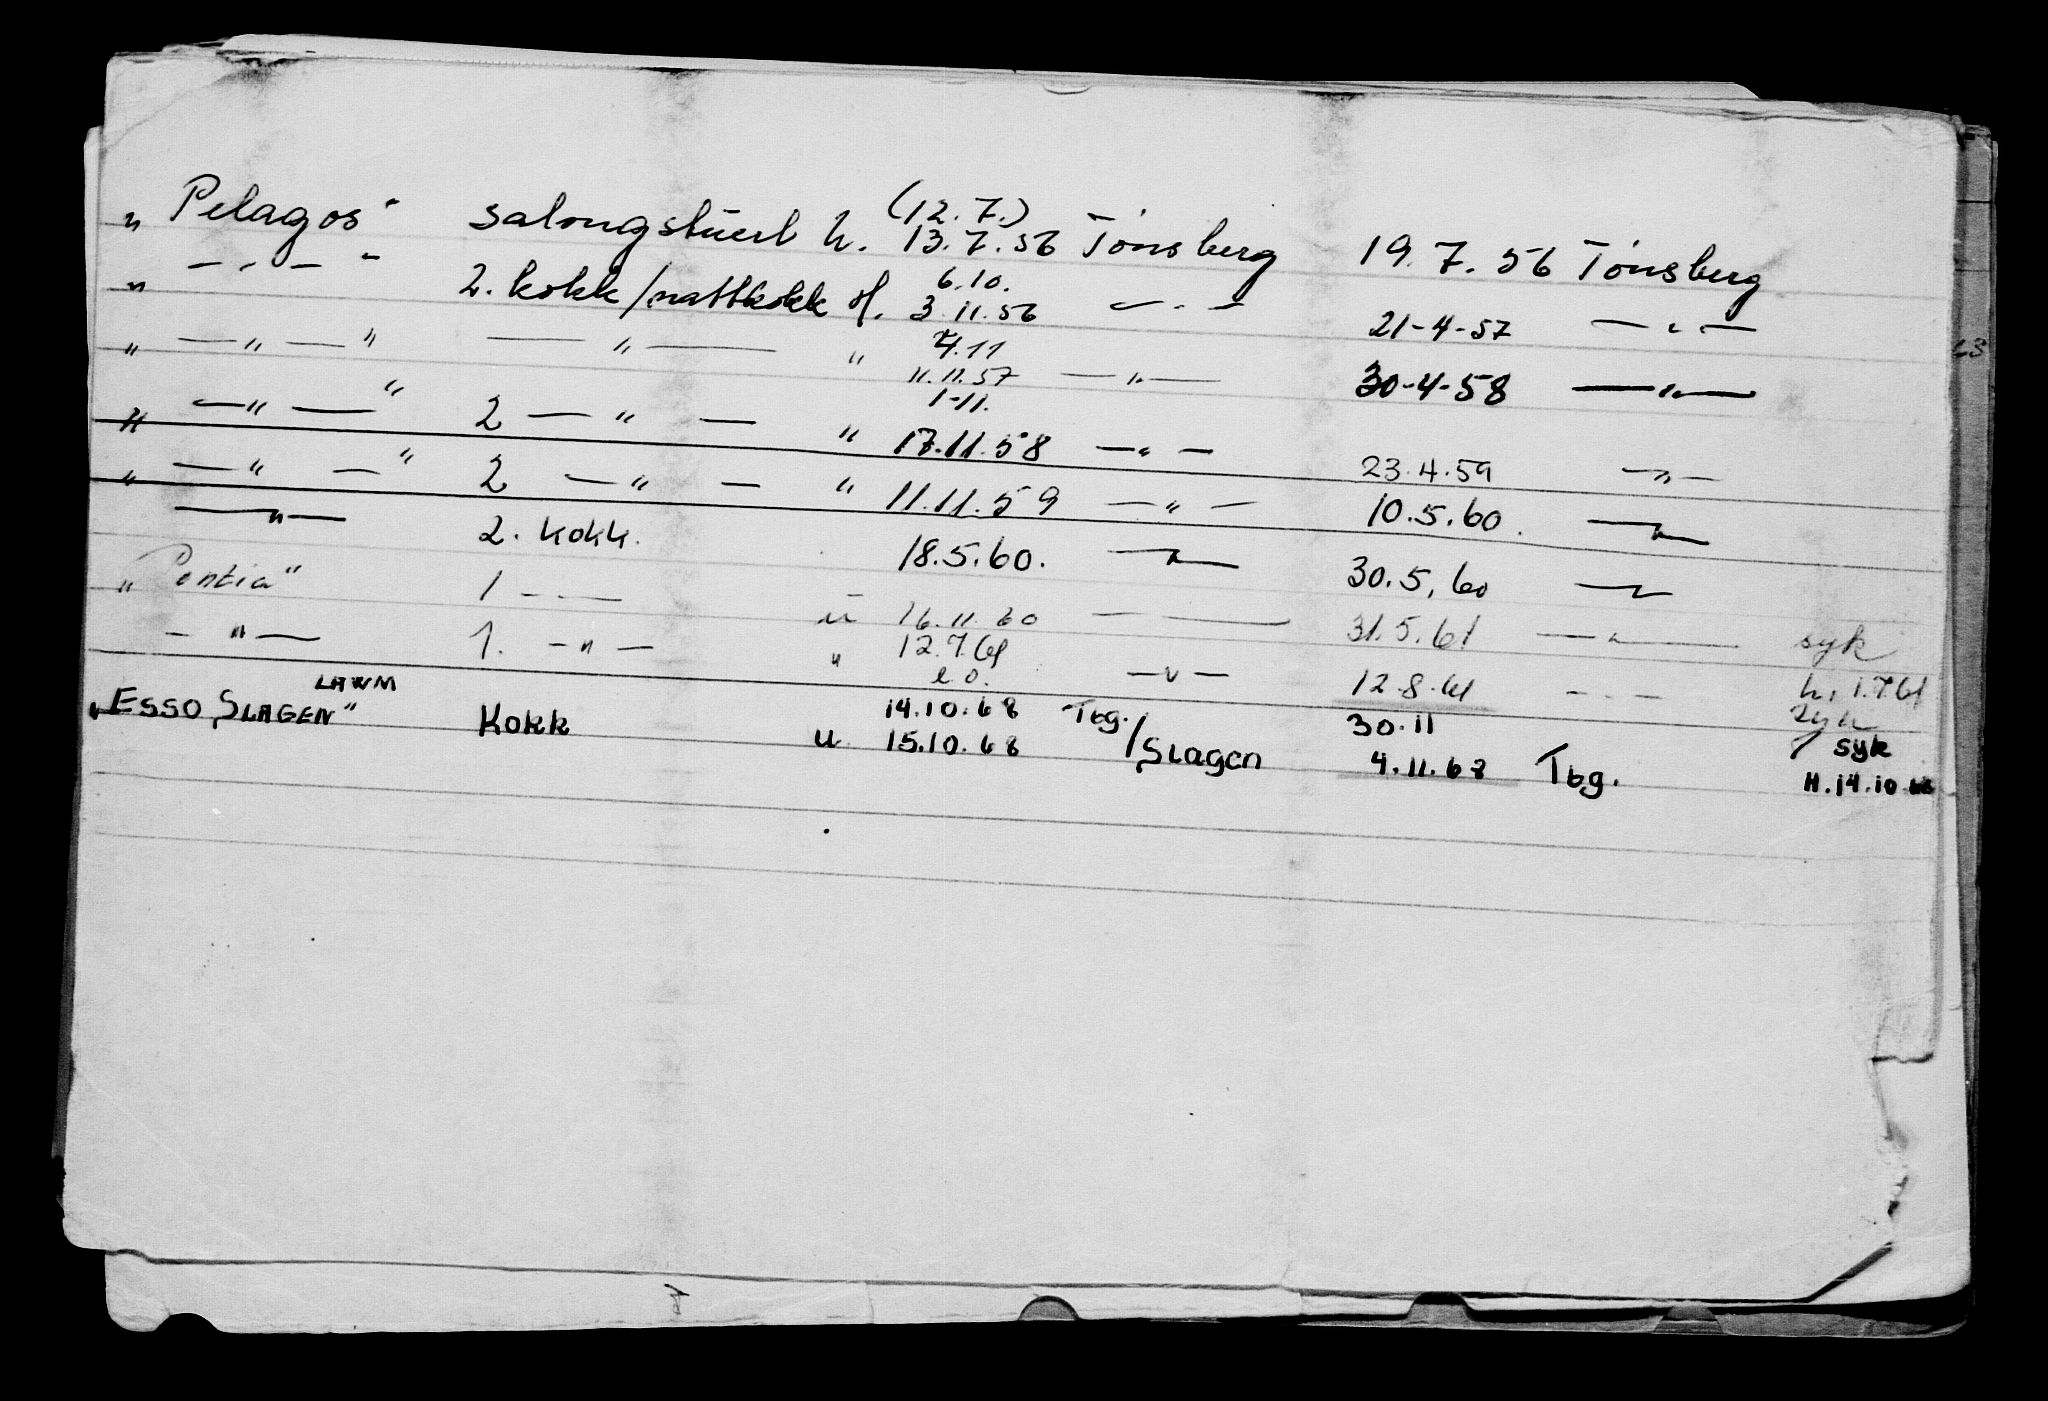 (12.7.)
„ Pelagos" salongstüert h. 13.7.56 Tønsberg 19.7.56 Tønsberg
6.10.
„ — " — " 2. kokk/nattkokk d. 3.11.56 — " — 21-4-57 — " —
7.11
„ — " — " — " — " 11.11.57 — " — 30-4-58 — " —
1-11.
„ — " — " 2 — " — " 17.11.58 — " — 23.4.59 — " —
„ — " — " 2 — " — " 11.11.59 — " — 10.5.60. — " —
— " — 2. kokk. 18.5.60. — " — 30.5.60 — " —
„ Pontia" 1 — " — u 16.11.60 — " — 31.5.61 — " — syk
— " — 1. — " — " 12.7.61 — " — 12.8.61 — " — h. 1.7.61
LHWM
„ESSO SLAGEN" Kokk 14.10.68 Tbg./Slagen 30.11 syk
u 15.10.68 4.11.68 Tbg. H.14.10.68